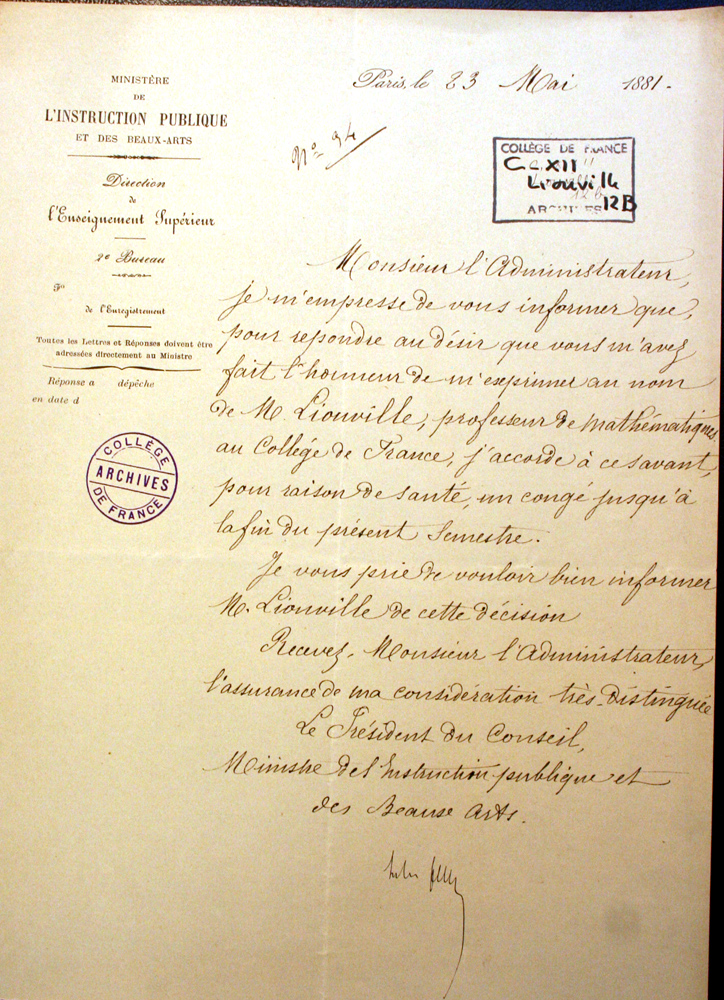 MINISTÈRE
DE
L'INSTRUCTION PUBLIQUE
ET DES BEAUX-ARTS
Direction
de
l'Enseignement Supérieur
2e Bureau
No
de l'Enregistrement
Toutes les Lettres et Réponses doivent être
adressées directement au Ministre
Réponse a dépêche
en date d
COLLÈGE
ARCHIVES
DE FRANCE
Paris, le 23 Mai 1881.
No 94
COLLÈGE DE FRANCE
C.XII
Liouville
12B
ARCHIVES
Monsieur l'Administrateur,
je m'empresse de vous informer que,
pour répondre au désir que vous m'avez
fait l'honneur de m'exprimer au nom
de M. Liouville, professeur de mathématiques
au Collège de France, j'accorde à ce savant,
pour raison de santé, un congé jusqu'à
la fin du présent Semestre.
Je vous prie de vouloir bien informer
M. Liouville de cette décision
Recevez, Monsieur l'Administrateur,
l'assurance de ma considération très-distinguée
Le Président du Conseil,
Ministre de l'Instruction publique et
des Beaux Arts.
Jules Ferry